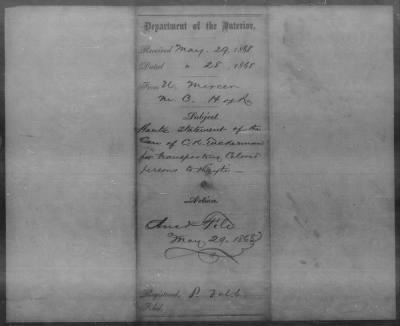 Department of the Interior,
Received May. 29. 1868
Dated " 28, 1868
From U. Mercer
M. C. H of R.
Subject
Wants statement of the
Case of C. K. Tuckerman
for transporting Colored
persons to Hayti —
Action
Ansd File
May 29. 1868
Registered, P.
Filed